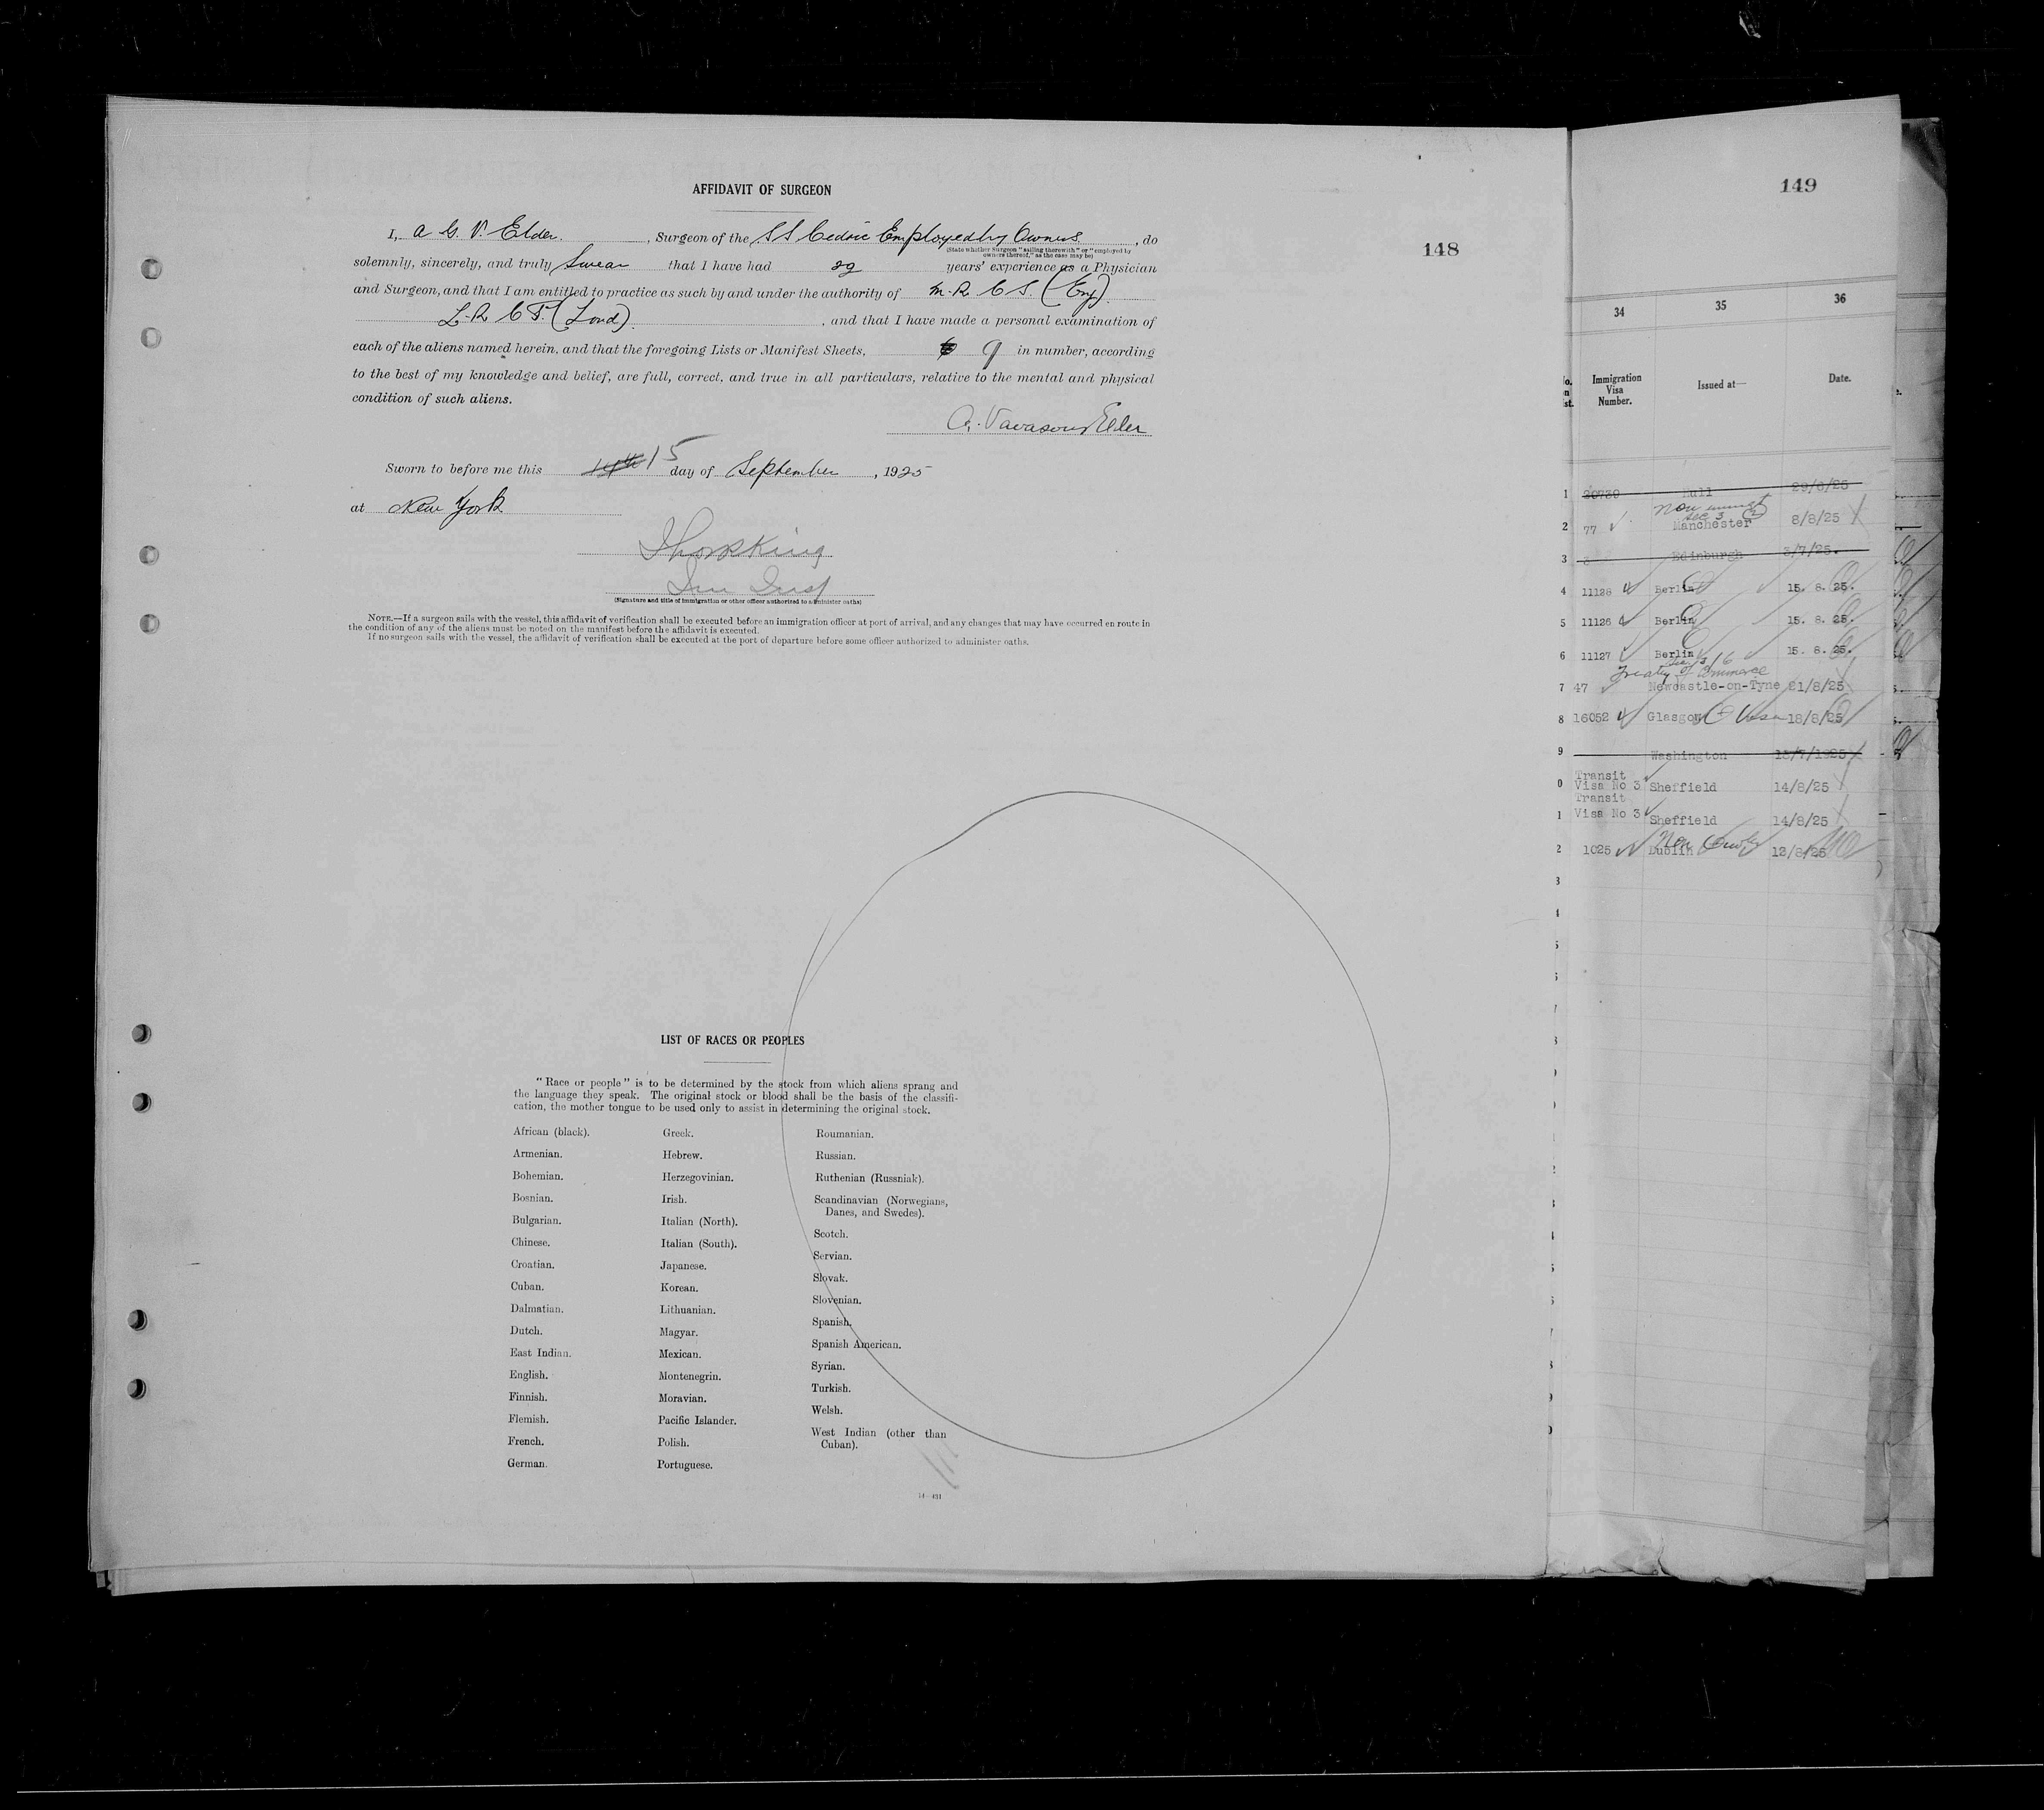 AFFIDAVIT OF SURGEON
148
I, A G. V. Elder. , Surgeon of the SS Cedric Employed by Owners , do
(State whether Surgeon "sailing therewith" or "employed by
owners thereof," as the case may be)
solemnly, sincerely, and truly Swear that I have had 29 years' experience as a Physician
and Surgeon, and that I am entitled to practice as such by and under the authority of M. R C S. (Eng).
L. R C P. (Lond). , and that I have made a personal examination of
each of the aliens named herein, and that the foregoing Lists or Manifest Sheets, 9 in number, according
to the best of my knowledge and belief, are full, correct, and true in all particulars, relative to the mental and physical
condition of such aliens.
A. Vavasour Elder
Sworn to before me this 14th 15 day of September , 1925
at New York
Imm Insp
(Signature and title of immigration or other officer authorized to administer oaths)
NOTE.—If a surgeon sails with the vessel, this affidavit of verification shall be executed before an immigration officer at port of arrival, and any changes that may have occurred en route in
the condition of any of the aliens must be noted on the manifest before the affidavit is executed.
If no surgeon sails with the vessel, the affidavit of verification shall be executed at the port of departure before some officer authorized to administer oaths.
LIST OF RACES OR PEOPLES
"Race or people" is to be determined by the stock from which aliens sprang and
the language they speak. The original stock or blood shall be the basis of the classifi-
cation, the mother tongue to be used only to assist in determining the original stock.
African (black).
Armenian.
Bohemian.
Bosnian.
Bulgarian.
Chinese.
Croatian.
Cuban.
Dalmatian.
Dutch.
East Indian.
English.
Finnish.
Flemish.
French.
German.
Greek.
Hebrew.
Herzegovinian.
Irish.
Italian (North).
Italian (South).
Japanese.
Korean.
Lithuanian.
Magyar.
Mexican.
Montenegrin.
Moravian.
Pacific Islander.
Polish.
Portuguese.
Roumanian.
Russian.
Ruthenian (Russniak).
Scandinavian (Norwegians,
Danes, and Swedes).
Scotch.
Servian.
Slovak.
Slovenian.
Spanish.
Spanish American.
Syrian.
Turkish.
Welsh.
West Indian (other than
Cuban).
14—431
149
34 35 36
Immigration
Visa
Number.
Issued at—
Date.
1 20730 Hull 29/6/25
Non immgt
sec 3 (2)
2 77 Manchester 8/8/25
3 Edinburgh 3/7/25.
4 11128 Berlin 15. 8. 25.
5 11126 Berlin 15. 8. 25.
6 11127 Berlin 15. 8. 25.
Sec 3/6
Treaty of Commerce
7 47 Newcastle-on-Tyne 21/8/25
8 16052 Glasgow Visa 18/8/25
9 Washington 18/7/1925
Transit
0 Visa No 3 Sheffield 14/8/25
Transit
1 Visa No 3 Sheffield 14/8/25
Non Quota
2 1025 Dublin 13/8/25